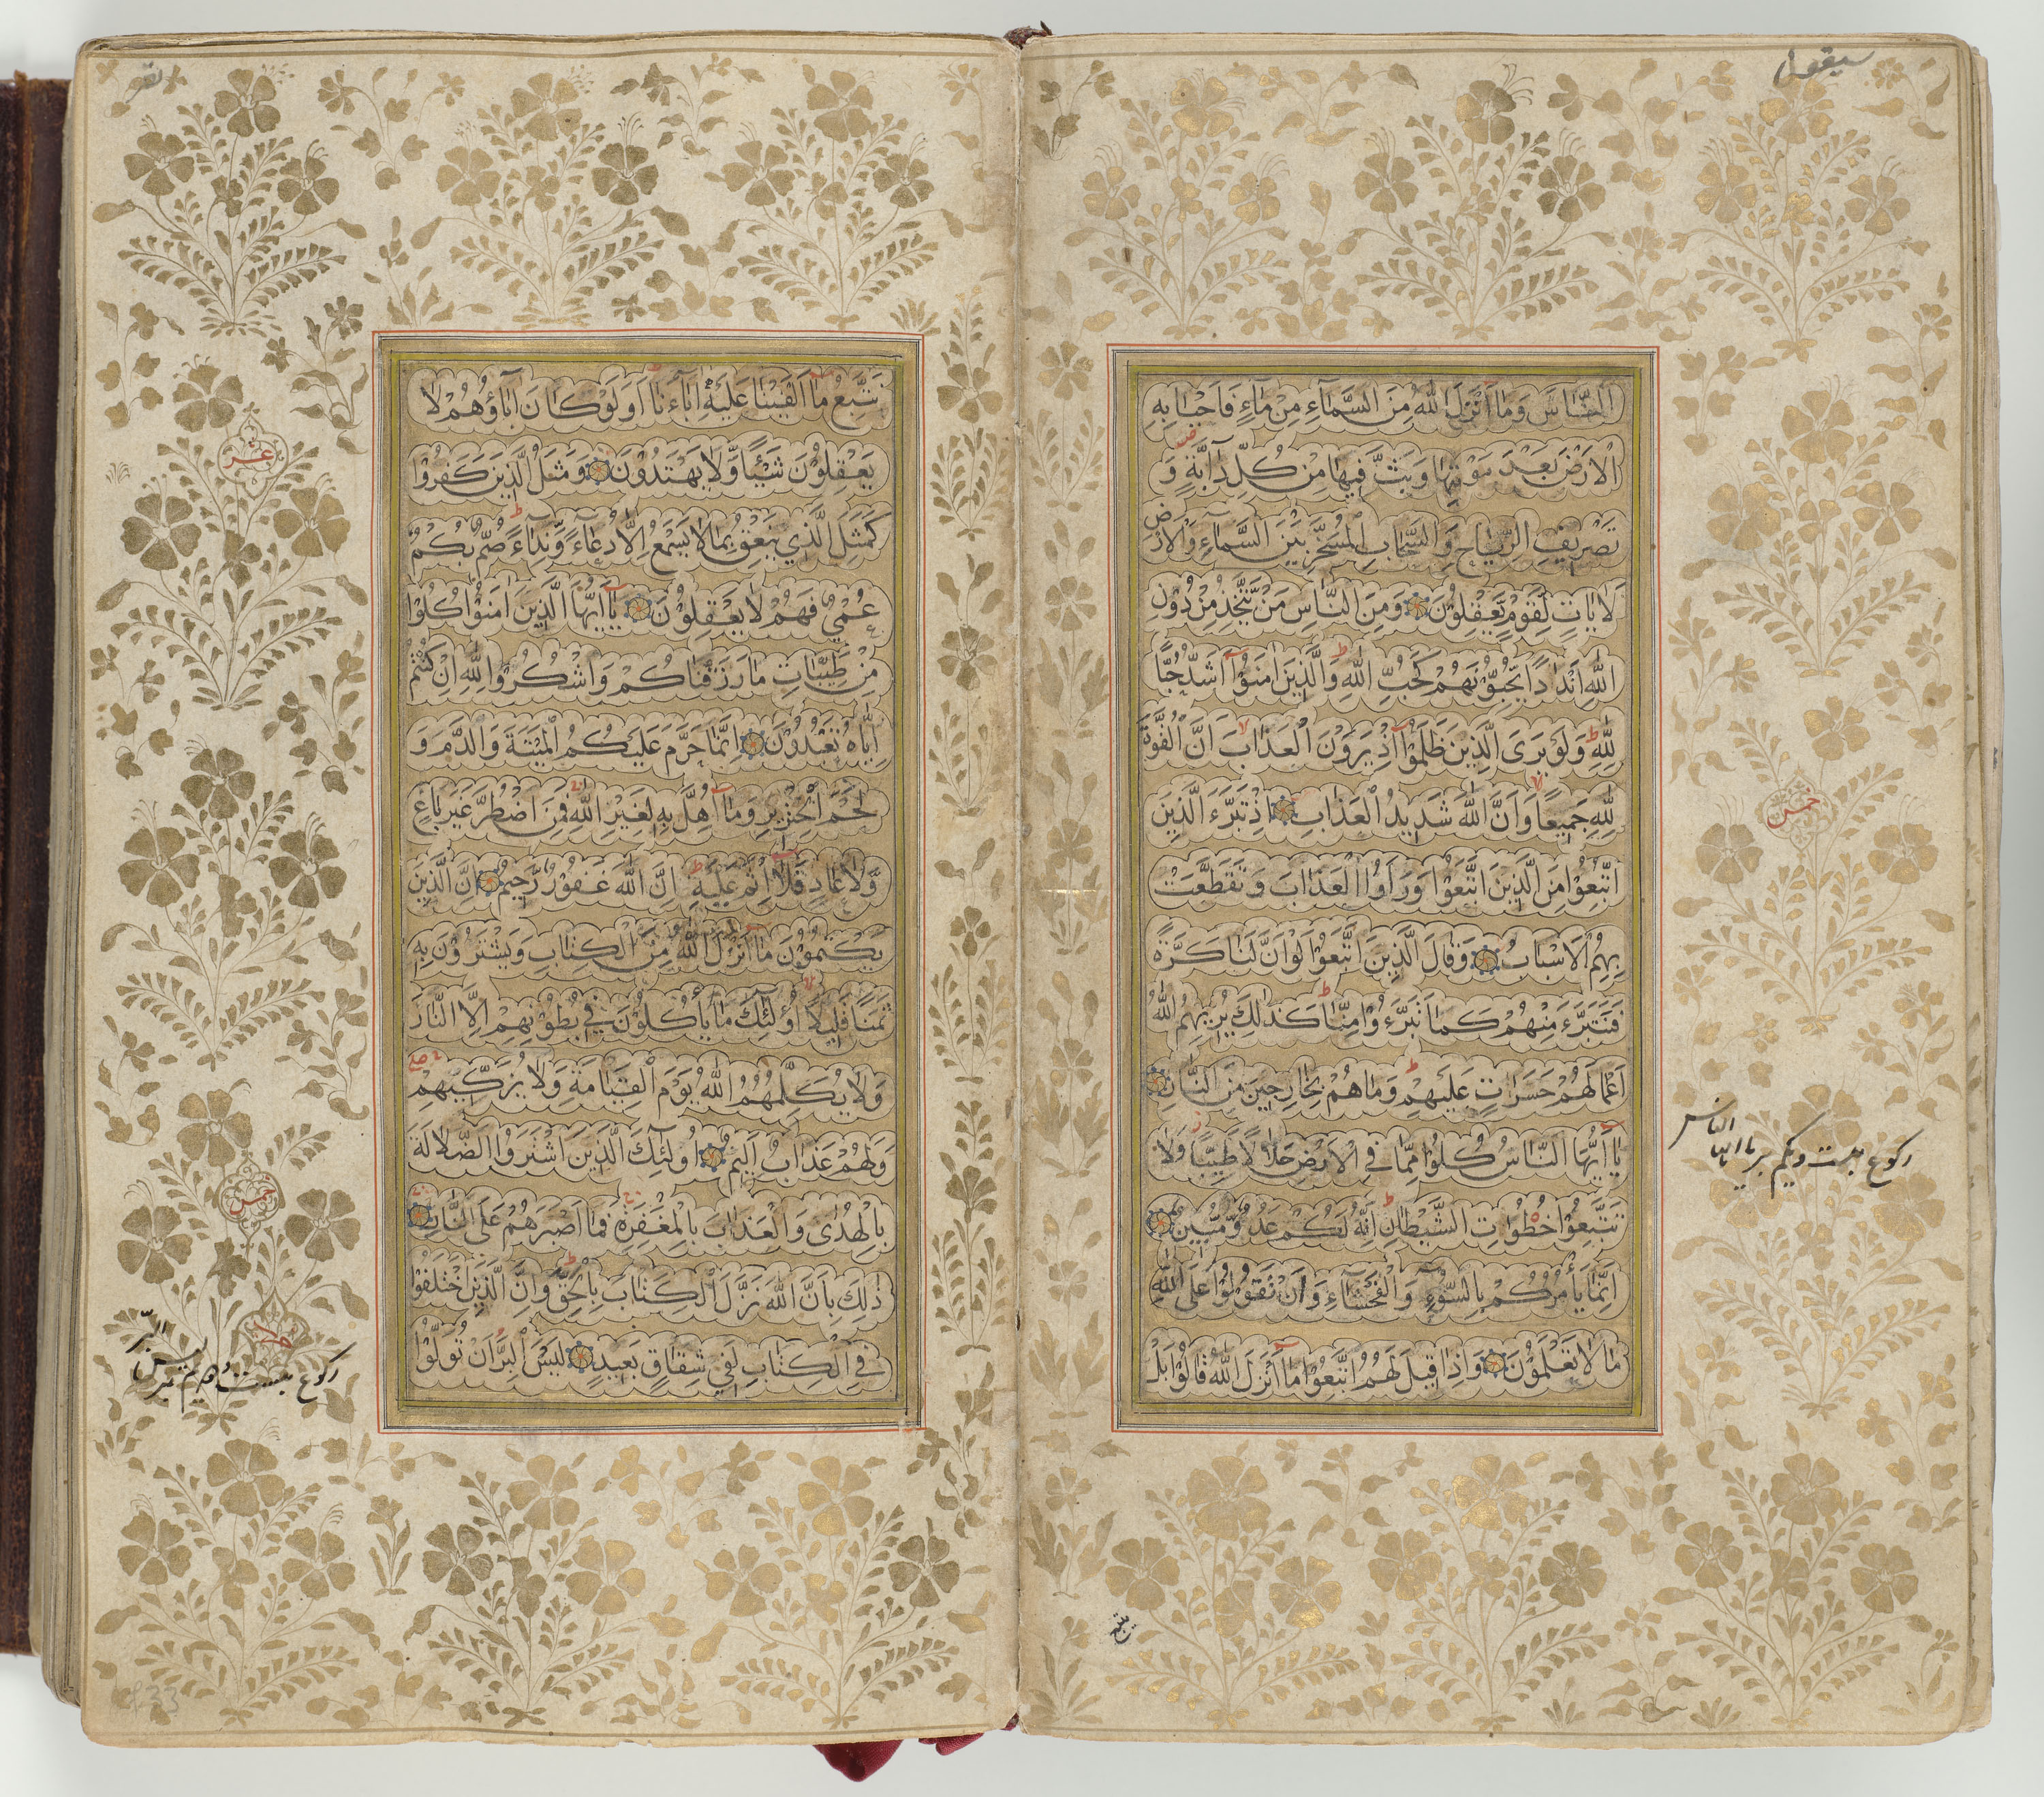 سيقول
النَّاسَ وَمَا اَنْزَلَ اللّٰهُ مِنَ السَّمَآءِ مِنْ مَآءٍ فَاَحْيَا بِهِ
الْاَرْضَ بَعْدَ مَوْتِهَا وَبَثَّ فِيهَا مِنْ كُلِّ دَآبَّةٍ وَ
تَصْرِيفِ الرِّيَاحِ وَالسَّحَابِ الْمُسَخَّرِ بَيْنَ السَّمَآءِ وَالْاَرْضِ
لَاٰيَاتٍ لِقَوْمٍ يَعْقِلُوْنَ وَمِنَ النَّاسِ مَنْ يَتَّخِذُ مِنْ دُوْنِ
اللّٰهِ اَنْدَادًا يُحِبُّوْنَهُمْ كَحُبِّ اللّٰهِ وَالَّذِينَ اٰمَنُوْٓا اَشَدُّ حُبًّا
لِلّٰهِ وَلَوْ يَرَى الَّذِينَ ظَلَمُوْٓا اِذْ يَرَوْنَ الْعَذَابَ اَنَّ الْقُوَّةَ
لِلّٰهِ جَمِيعًا وَاَنَّ اللّٰهَ شَدِيدُ الْعَذَابِ اِذْ تَبَرَّءَ الَّذِينَ
خمس
اتُّبِعُوْا مِنَ الَّذِينَ اتَّبَعُوْا وَرَاَوُا الْعَذَابَ وَتَقَطَّعَتْ
بِهِمُ الْاَسْبَابُ وَقَالَ الَّذِينَ اتَّبَعُوْا لَوْ اَنَّ لَنَا كَرَّةً
فَنَتَبَرَّءَ مِنْهُمْ كَمَا تَبَرَّءُوْا مِنَّا كَذٰلِكَ يُرِيهِمُ اللّٰهُ
اَعْمَالَهُمْ حَسَرَاتٍ عَلَيْهِمْ وَمَا هُمْ بِخَارِجِينَ مِنَ النَّارِ
يَآ اَيُّهَا النَّاسُ كُلُوْا مِمَّا فِي الْاَرْضِ حَلَالًا طَيِّبًا وَلَا
ركوع بيست ويكم بر يا ايها الناس
تَتَّبِعُوْا خُطُوَاتِ الشَّيْطَانِ اِنَّهُ لَكُمْ عَدُوٌّ مُبِينٌ
اِنَّمَا يَأْمُرُكُمْ بِالسُّوْٓءِ وَالْفَحْشَآءِ وَاَنْ تَقُوْلُوْا عَلَى اللّٰهِ
مَا لَا تَعْلَمُوْنَ وَاِذَا قِيلَ لَهُمُ اتَّبِعُوْا مَآ اَنْزَلَ اللّٰهُ قَالُوْا بَلْ
نتبع
نَتَّبِعُ مَآ اَلْفَيْنَا عَلَيْهِ اٰبَآءَنَا اَوَلَوْ كَانَ اٰبَاؤُهُمْ لَا
يَعْقِلُوْنَ شَيْئًا وَلَا يَهْتَدُوْنَ وَمَثَلُ الَّذِينَ كَفَرُوْا
عشر
كَمَثَلِ الَّذِي يَنْعِقُ بِمَا لَا يَسْمَعُ اِلَّا دُعَآءً وَنِدَآءً صُمٌّ بُكْمٌ
عُمْيٌ فَهُمْ لَا يَعْقِلُوْنَ يَآ اَيُّهَا الَّذِينَ اٰمَنُوْا كُلُوْا
مِنْ طَيِّبَاتِ مَا رَزَقْنَاكُمْ وَاشْكُرُوْا لِلّٰهِ اِنْ كُنْتُمْ
اِيَّاهُ تَعْبُدُوْنَ اِنَّمَا حَرَّمَ عَلَيْكُمُ الْمَيْتَةَ وَالدَّمَ وَ
لَحْمَ الْخِنْزِيرِ وَمَآ اُهِلَّ بِهِ لِغَيْرِ اللّٰهِ فَمَنِ اضْطُرَّ غَيْرَ بَاغٍ
وَلَا عَادٍ فَلَآ اِثْمَ عَلَيْهِ اِنَّ اللّٰهَ غَفُوْرٌ رَحِيمٌ اِنَّ الَّذِينَ
يَكْتُمُوْنَ مَآ اَنْزَلَ اللّٰهُ مِنَ الْكِتَابِ وَيَشْتَرُوْنَ بِهِ
ثَمَنًا قَلِيلًا اُولٰٓئِكَ مَا يَأْكُلُوْنَ فِي بُطُوْنِهِمْ اِلَّا النَّارَ
وَلَا يُكَلِّمُهُمُ اللّٰهُ يَوْمَ الْقِيَامَةِ وَلَا يُزَكِّيهِمْ
وَلَهُمْ عَذَابٌ اَلِيمٌ اُولٰٓئِكَ الَّذِينَ اشْتَرَوُا الضَّلَالَةَ
خمس
بِالْهُدٰى وَالْعَذَابَ بِالْمَغْفِرَةِ فَمَآ اَصْبَرَهُمْ عَلَى النَّارِ
ذٰلِكَ بِاَنَّ اللّٰهَ نَزَّلَ الْكِتَابَ بِالْحَقِّ وَاِنَّ الَّذِينَ اخْتَلَفُوْا
فِي الْكِتَابِ لَفِي شِقَاقٍ بَعِيدٍ لَيْسَ الْبِرَّ اَنْ تُوَلُّوْا
ركوع بيست ودويم بر ليس البرّ